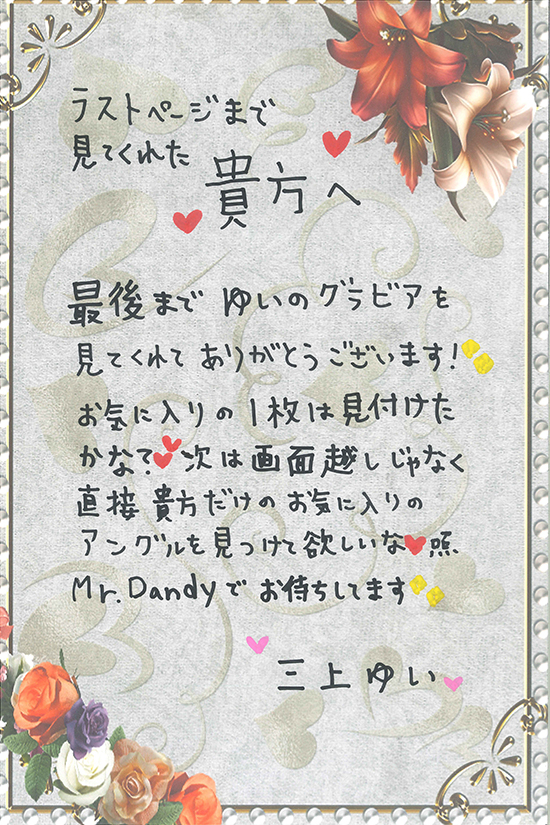 ラストページまで
見てくれた
貴方へ
最後まで ゆいのグラビアを
見てくれてありがとうございます!
お気に入りの1枚は見付けた
かな?次は画面越しじゃなく
直接貴方だけのお気に入りの
アングルを見つけて欲しいな 照
Mr.Dandyでお待ちしてます
三上ゆい